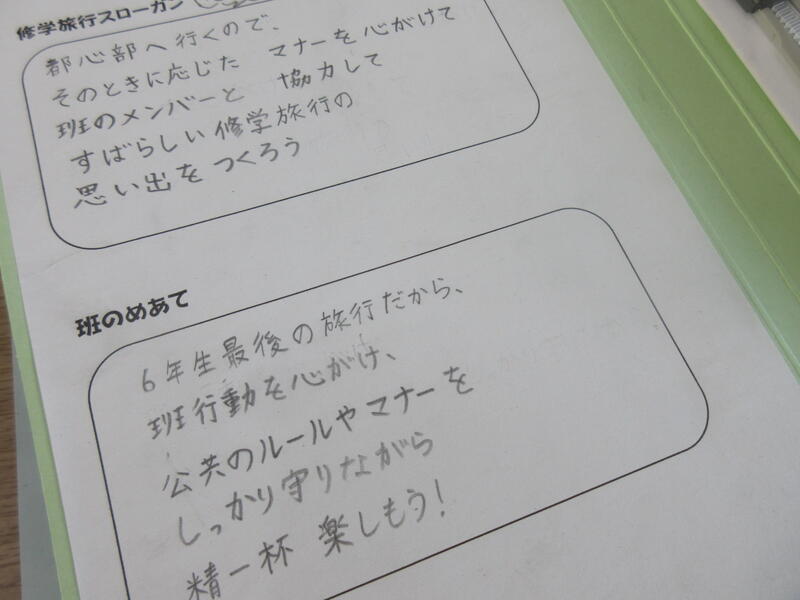 修学旅行スローガン
都心部へ行くので、
そのときに応じた マナーを心がけて
班のメンバーと 協力して
すばらしい修学旅行の
思い出をつくろう
班のめあて
6年生最後の旅行だから、
班行動を心がけ、
公共のルールやマナーを
しっかり守りながら
精一杯 楽しもう!